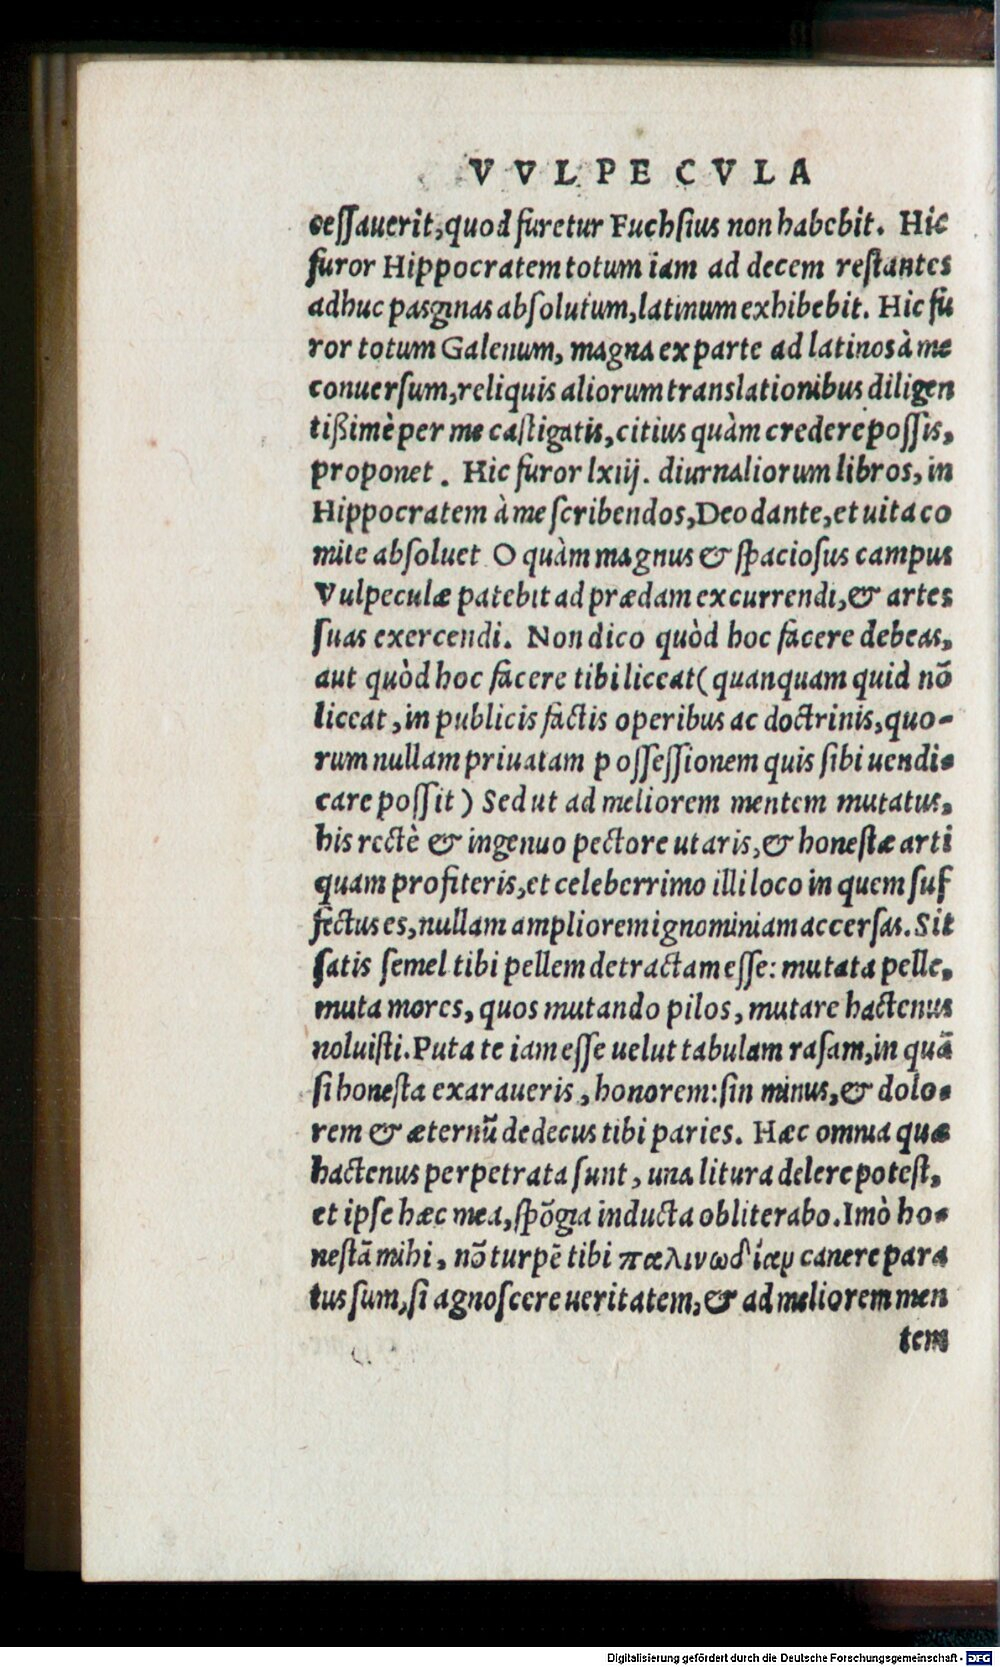 VVLPECVLA
ceſſauerit, quod furetur Fuchſius non habebit. Hic
furor Hippocratem totum iam ad decem reſtantes
adhuc pasginas abſolutum, latinum exhibebit. Hic fu
ror totum Galenum, magna ex parte ad latinos à me
conuerſum, reliquis aliorum translationibus diligen
tißimè per me caſtigatis, citius quàm credere poſſis,
proponet. Hic furor lxiij. diurnaliorum libros, in
Hippocratem à me ſcribendos, Deo dante, et uita co
mite abſoluet O quàm magnus & ſpacioſus campus
Vulpeculæ patebit ad prædam excurrendi, & artes
ſuas exercendi. Non dico quòd hoc facere debeas,
aut quòd hoc facere tibi liceat (quanquam quid nõ
liceat, in publicis factis operibus ac doctrinis, quo-
rum nullam priuatam poſſeſſionem quis ſibi uendi-
care poſſit) Sed ut ad meliorem mentem mutatus,
his rectè & ingenuo pectore utaris, & honeſtæ arti
quam profiteris, et celeberrimo illi loco in quem ſuf
fectus es, nullam ampliorem ignominiam accerſas. Sit
ſatis ſemel tibi pellem detractam eſſe: mutata pelle,
muta mores, quos mutando pilos, mutare hactenus
noluiſti. Puta te iam eſſe uelut tabulam raſam, in quã
ſi honeſta exaraueris, honorem: ſin minus, & dolo-
rem & æternũ dedecus tibi paries. Hæc omnia quæ
hactenus perpetrata ſunt, una litura delere poteſt,
et ipſe hæc mea, ſpõgia inducta obliterabo. Imò ho-
neſtã mihi, nõ turpẽ tibi παλινωδίαν canere para
tus ſum, ſi agnoſcere ueritatem, & ad meliorem men
tem
Digitalisierung gefördert durch die Deutsche Forschungsgemeinschaft - DFG